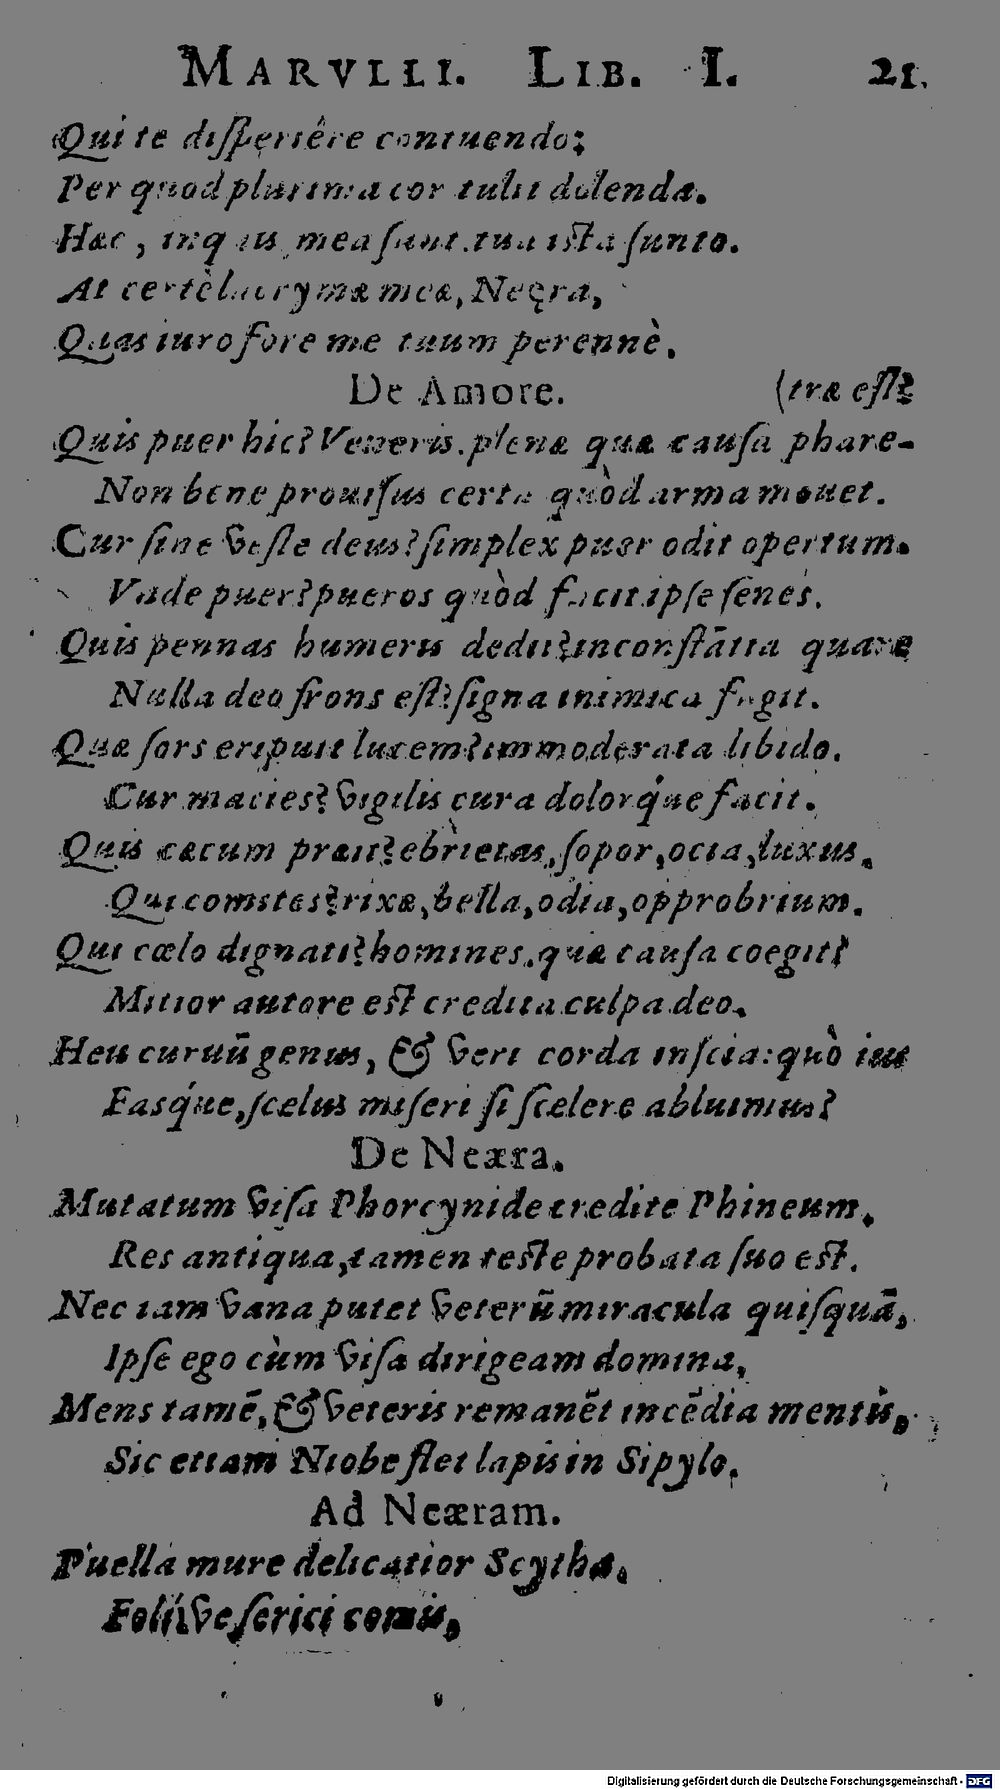 MARVLLI. LIB. I. 21.
Qui te diſperiêre contuendo;
Per quod plurima cor tulit dolenda.
Hæc, inquis, mea ſunt. tua iſta ſunto.
At certè lacrymæ meæ, Neęra,
Quas iuro fore me tuum perennè.
De Amore. (træ eſt?
Quis puer hic? Veneris. plenæ quæ cauſa phare-
Non bene prouiſus certa quòd arma mouet.
Cur ſine veſte deus? ſimplex puer odit opertum.
Vnde puer? pueros quòd facit ipſe ſenes.
Quis pennas humeris dedit? inconſtātia quare
Nulla deo frons eſt? ſigna inimica fugit.
Quæ ſors eripuit lucem? immoderata libido.
Cur macies? vigilis cura dolorq́ue facit.
Quis cæcum præit? ebrietas, ſopor, ocia, luxus.
Qui comites? rixæ, bella, odia, opprobrium.
Qui cœlo dignati? homines. quæ cauſa coegit?
Mitior autore eſt credita culpa deo.
Heu curuū genus, & veri corda inſcia: quò ius
Fasq́ue, ſcelus miſeri ſi ſcelere abluimus?
De Neæra.
Mutatum viſa Phorcynide credite Phineum.
Res antiqua, tamen teſte probata ſuo eſt.
Nec iam vana putet veterū miracula quiſquā,
Ipſe ego cùm viſa dirigeam domina,
Mens tamē, & veteris remanēt incēdia mentis,
Sic etiam Niobe flet lapis in Sipylo.
Ad Neæram.
Puella mure delicatior Scytha,
Folíve ſerici comis,
Digitalisierung gefördert durch die Deutsche Forschungsgemeinschaft - DFG